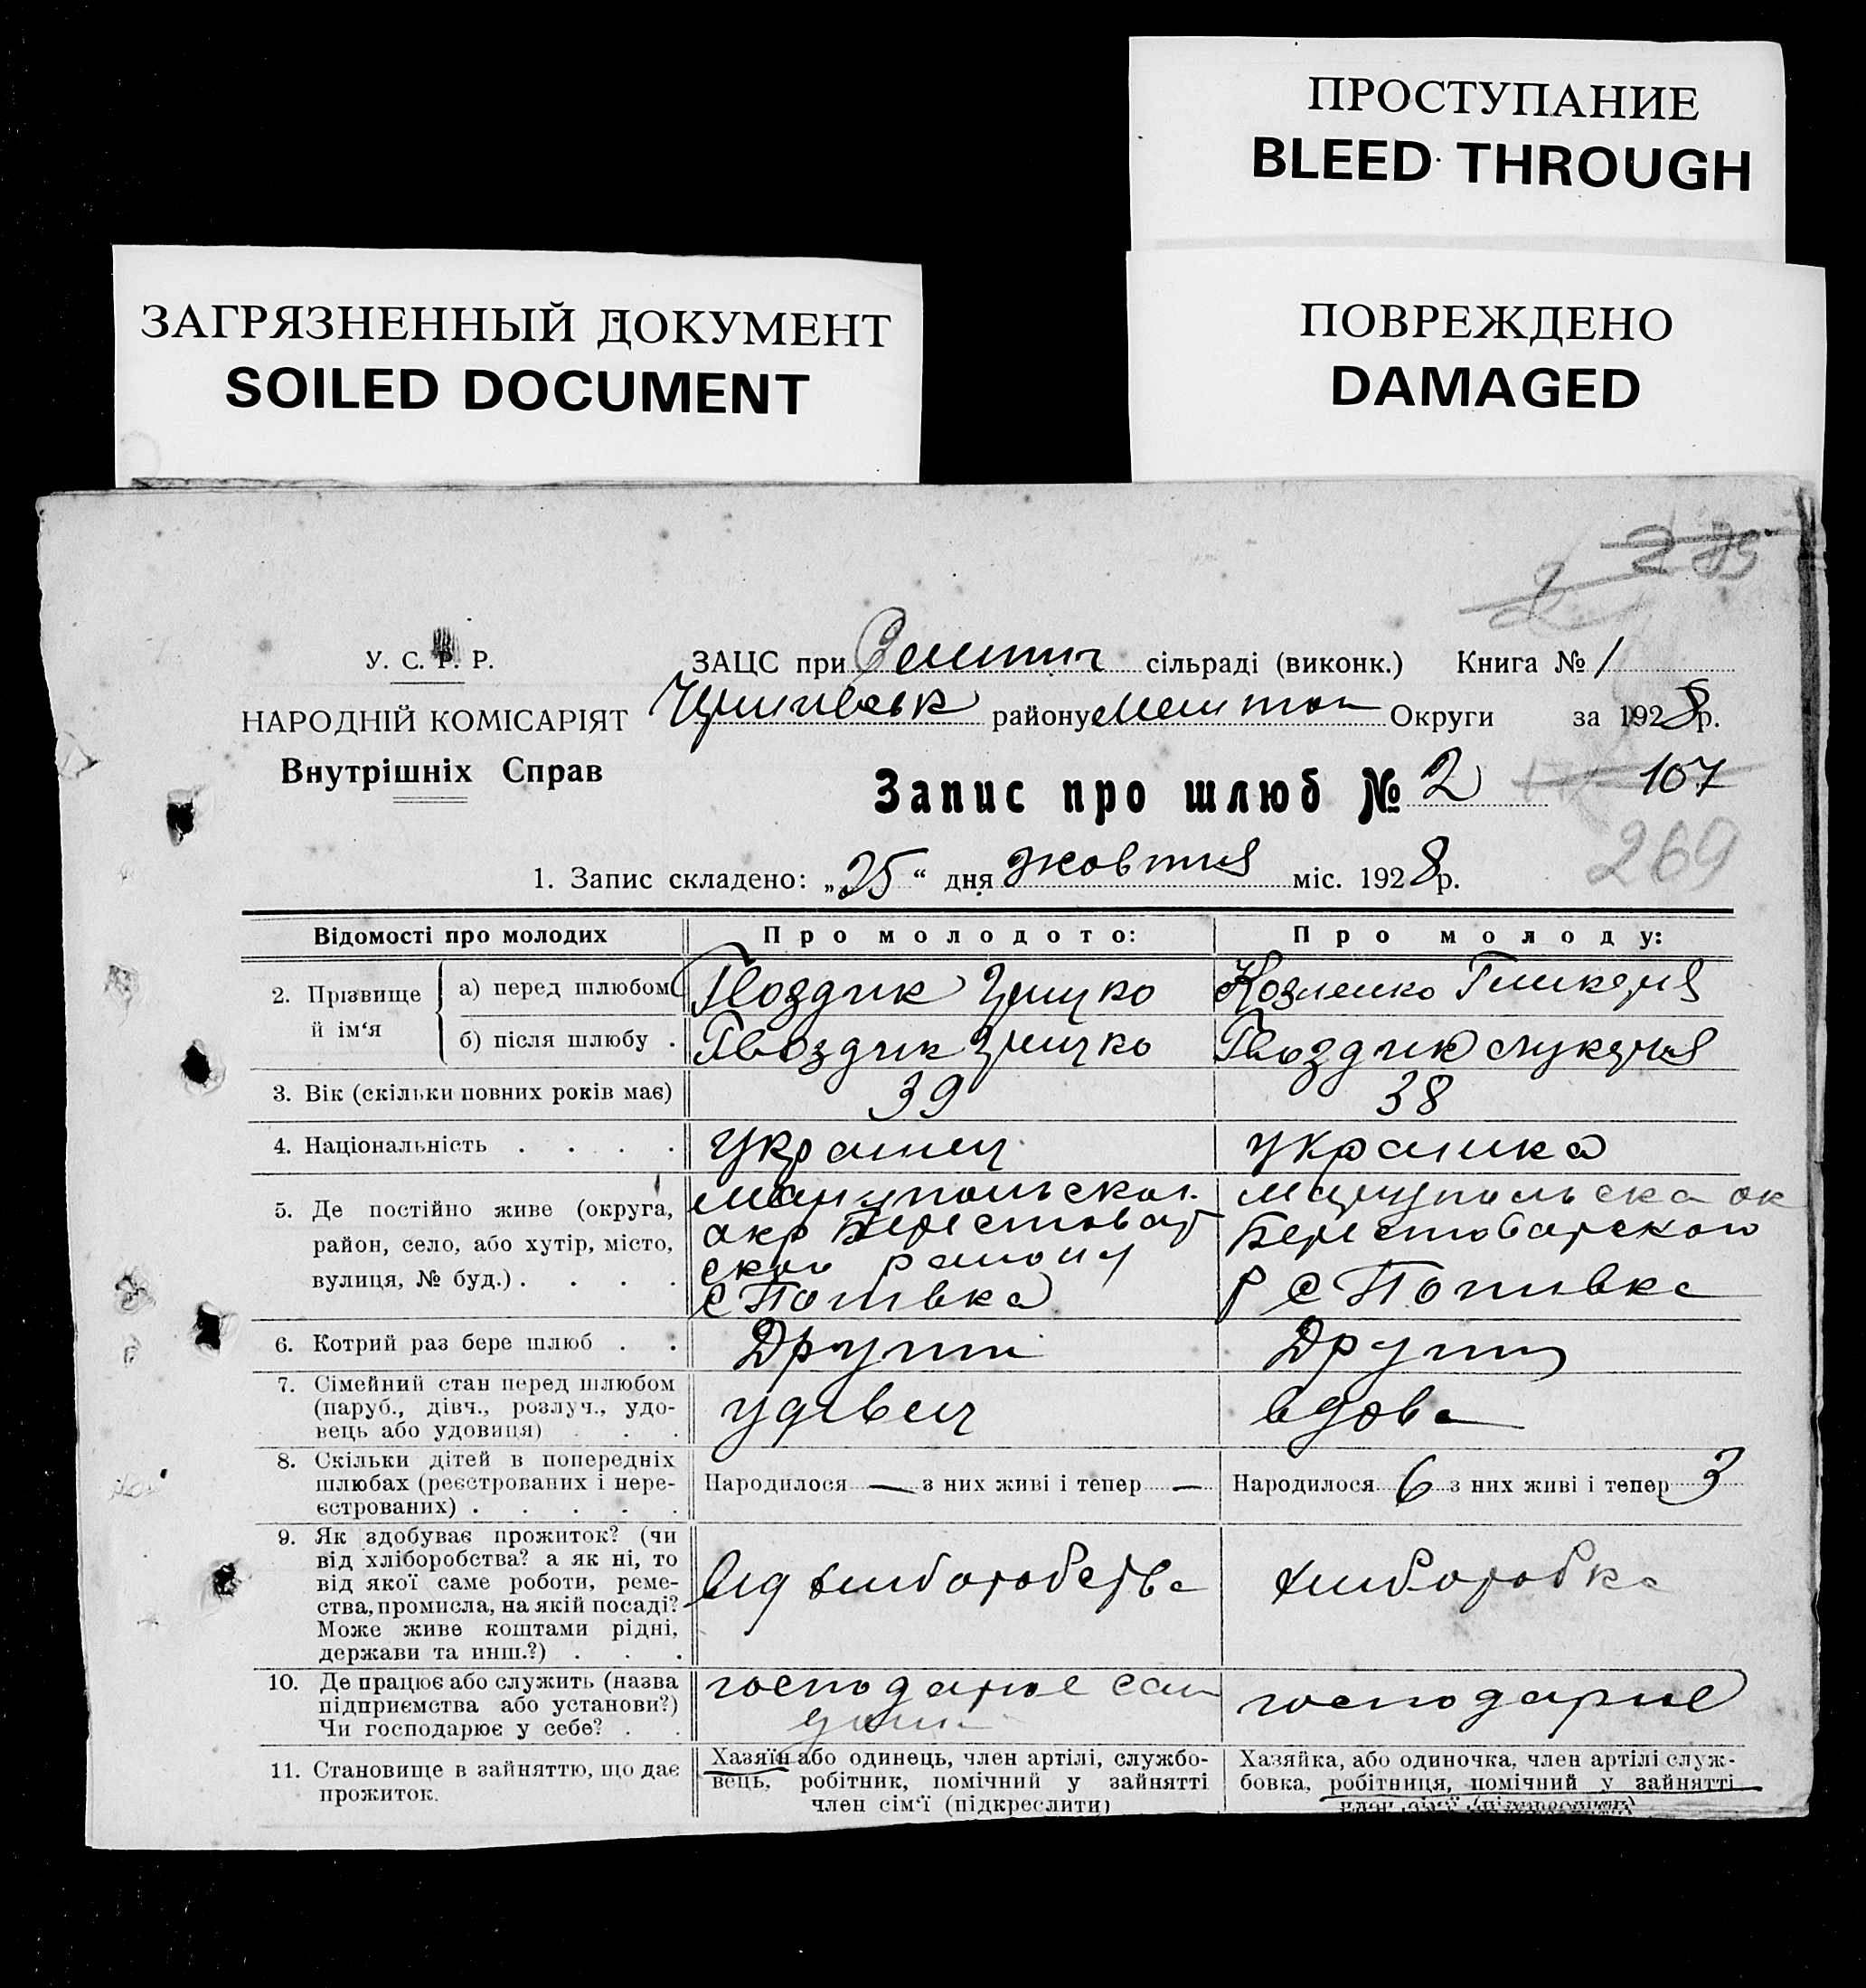 ПРОСТУПАНИЕ
BLEED THROUGH
ЗАГРЯЗНЕННЫЙ ДОКУМЕНТ
SOILED DOCUMENT
ПОВРЕЖДЕНО
DAMAGED
У. С. Р. Р.
НАРОДНІЙ КОМІСАРІЯТ
Внутрішніх Справ
ЗАЦС при сільраді (виконк.) Книга № 1
району Округи за 1928 р.
Запис про шлюб № 2
107
269
1. Запис складено: „25“ дня жовтня міс. 1928 р.
Відомості про молодих
Про молодого:
Про молоду:
2. Прізвище й ім‘я
а) перед шлюбом
Гвоздик Грицко
Козленко
б) після шлюбу .
Гвоздик Грицко
Гвоздик Лукерія
3. Вік (скільки повних років має)
39
38
4. Національність . . . .
українец
українка
5. Де постійно живе (округа,
район, село, або хутір, місто,
вулиця, № буд.) . . . .
Маріупольскої
окр Берестовар
ского району
с Попивка
Маріупольска ок
Берестоварского
р с Попивка
6. Котрий раз бере шлюб . .
Другий
Другий
7. Сімейний стан перед шлюбом
(паруб., дівч., розлуч., удо-
вець або удовиця) . . .
удівець
вдова
8. Скільки дітей в попередніх
шлюбах (реєстрованих і нере-
єстрованих) . . . . .
Народилося — з них живі і тепер —
Народилося 6 з них живі і тепер 3
9. Як здобуває прожиток? (чи
від хліборобства? а як ні, то
від якої саме роботи, реме-
ства, промисла, на якій посаді?
Може живе коштами рідні,
держави та инш.?) . . .
від хліборобства
хлиборобка
10. Де працює або служить (назва
підприємства або установи?)
Чи господарює у себе? . .
господарює сам
господарює
11. Становище в зайняттю, що дає
прожиток.
Хазяїн або одинець, член артілі, службо-
вець, робітник, помічний у зайнятті
член сім‘ї (підкреслити)
Хазяйка, або одиночка, член артілі служ-
бовка, робітниця, помічний у зайнятті
член сім‘ї (підкреслити)